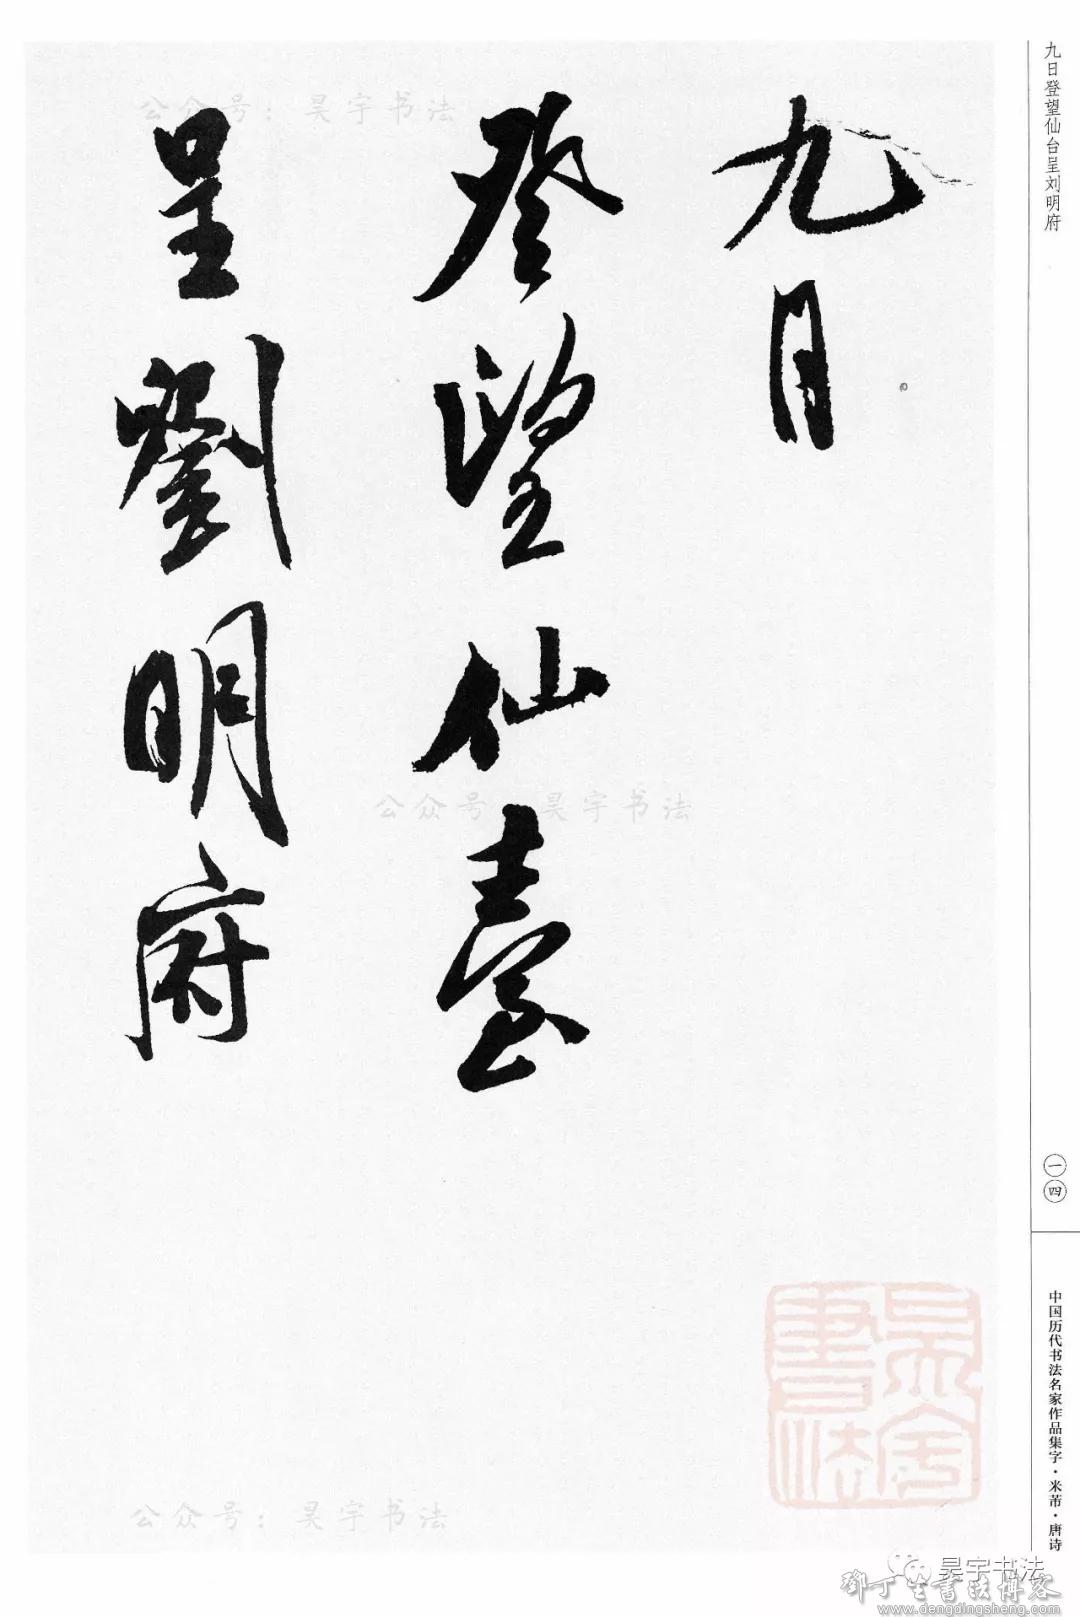 九日
登望仙臺
呈劉明府
九日登望仙台呈刘明府
一四
中国历代书法名家作品集字·米芾·唐诗
公众号：昊宇书法
公众号 昊宇书法
公众号：昊宇书法
昊宇書法
昊宇书法
鄧丁生書法博客
www.dengdingsheng.com